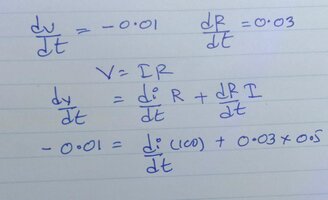 dv/dt = -0.01 dR/dt = 0.03
V = IR
dv/dt = di/dt R + dR/dt I
-0.01 = di/dt (100) + 0.03 × 0.5